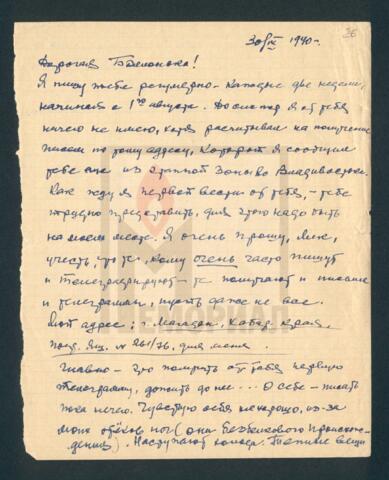 30/IX 1940 г.
36
Дорогая Беленька!
Я пишу тебе регулярно - каждые две недели,
начиная с 1го августа. До сих пор я от тебя
ничего не имею, хотя рассчитывал на получение
писем по тому адресу, который я сообщил
тебе еще из зоны Владивостока.
Как жду я первой вести от тебя, - тебе
трудно представить, для этого надо быть
на моем месте. Я очень прошу,
учесть, что те, кому очень часто пишут
и телеграфируют - те получают и письма
и телеграммы, пусть даже не все.
Мой адрес: г. Магадан, Хабар. края,
почт. ящ. № 261/76, для меня.
Главное - это получить от тебя первую
телеграмму, дожить до нее... О себе - писать
пока нечего. Чувствую себя нехорошо, из-за
моих отёков ног (они безбелкового происхож-
дения). Наступают холода. Теплые вещи
МЕМОРИАЛ